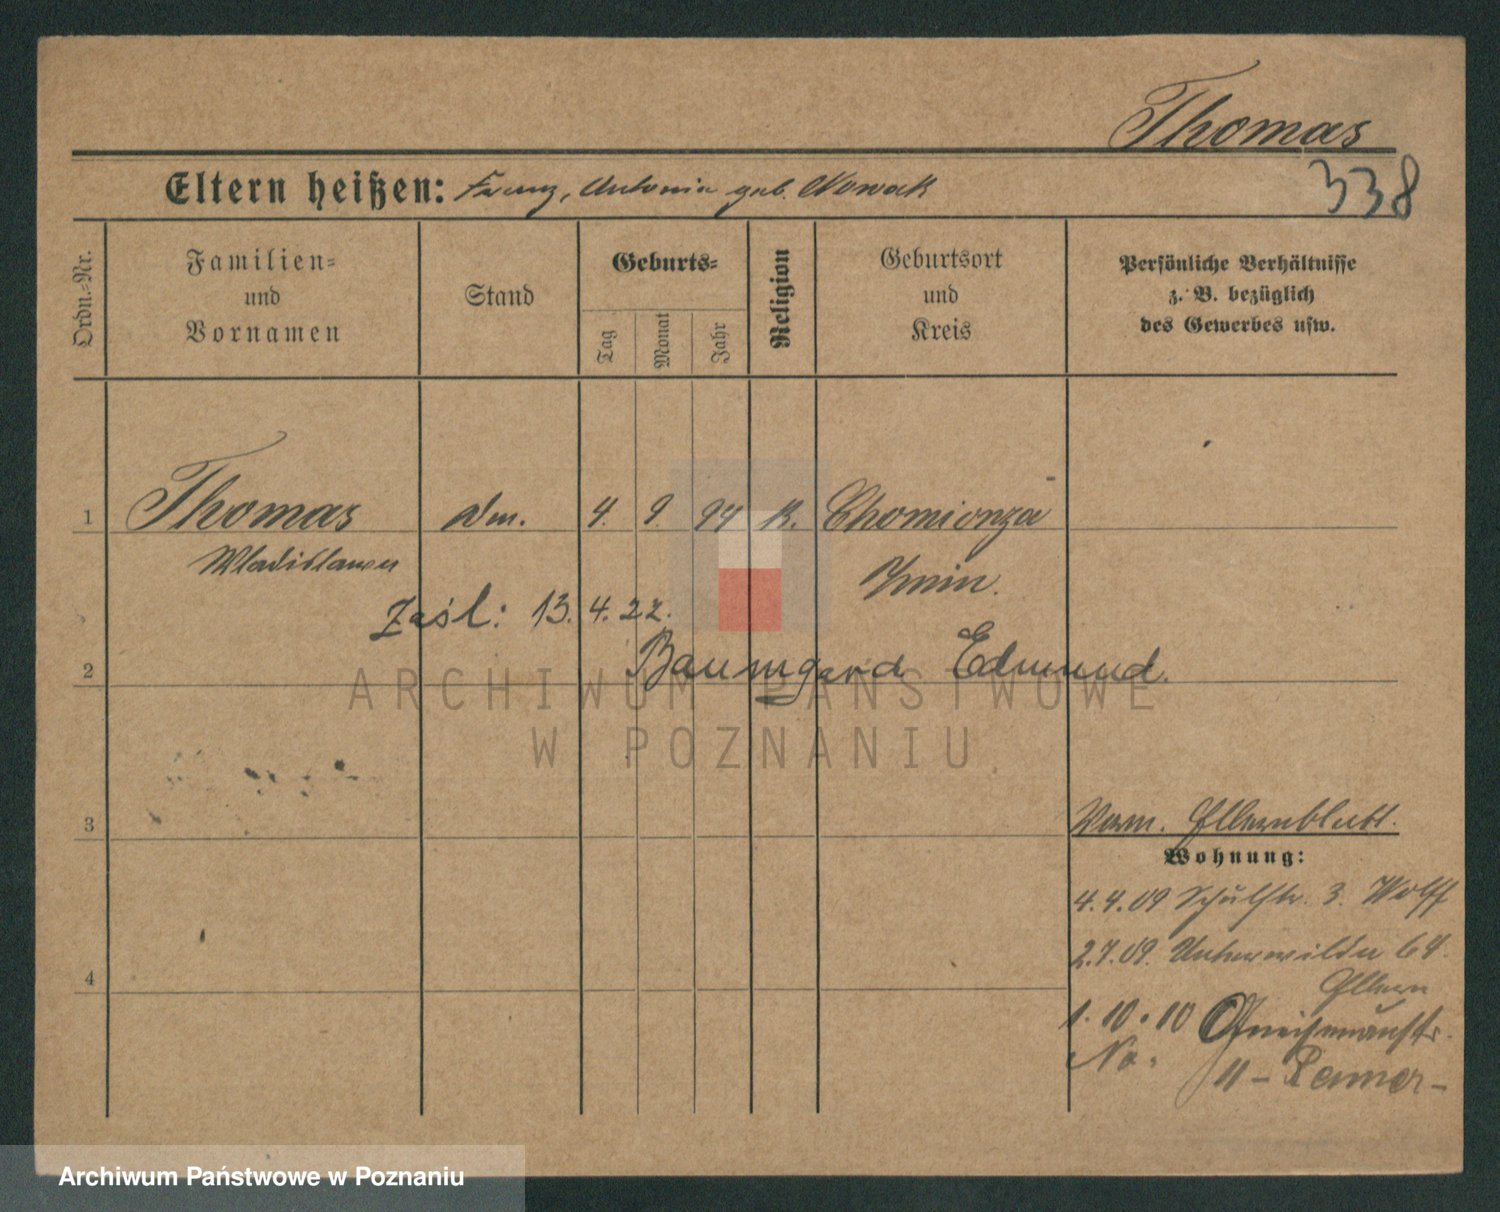 Thomas
338
Eltern heißen: Franz, Antonia geb. Nowak
Ordn.-Nr.
Familien=
und
Vornamen
Stand
Geburts=
Tag
Monat
Jahr
Religion
Geburtsort
und
Kreis
Persönliche Verhältnisse
z. B. bezüglich
des Gewerbes usw.
1 Thomas 4. 9. 94 K. Chomionza
Wladislawa Znin.
Zaśl: 13.4.22.
2 Baumgard Edmund.
ARCHIWUM PAŃSTWOWE
W POZNANIU
3
Wohnung:
4.4.09 Schulstr. 3. Wolff
2.7.09. Unterwilda 64.
4
Eltern
1.10.10 Gneisenaustr.
No. 11 –
Archiwum Państwowe w Poznaniu